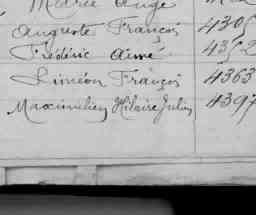 Marie Ange
Auguste François 4305
Frédéric Aimé 4352
Siméon François 4363
Maximilien Hilaire Julien 4397